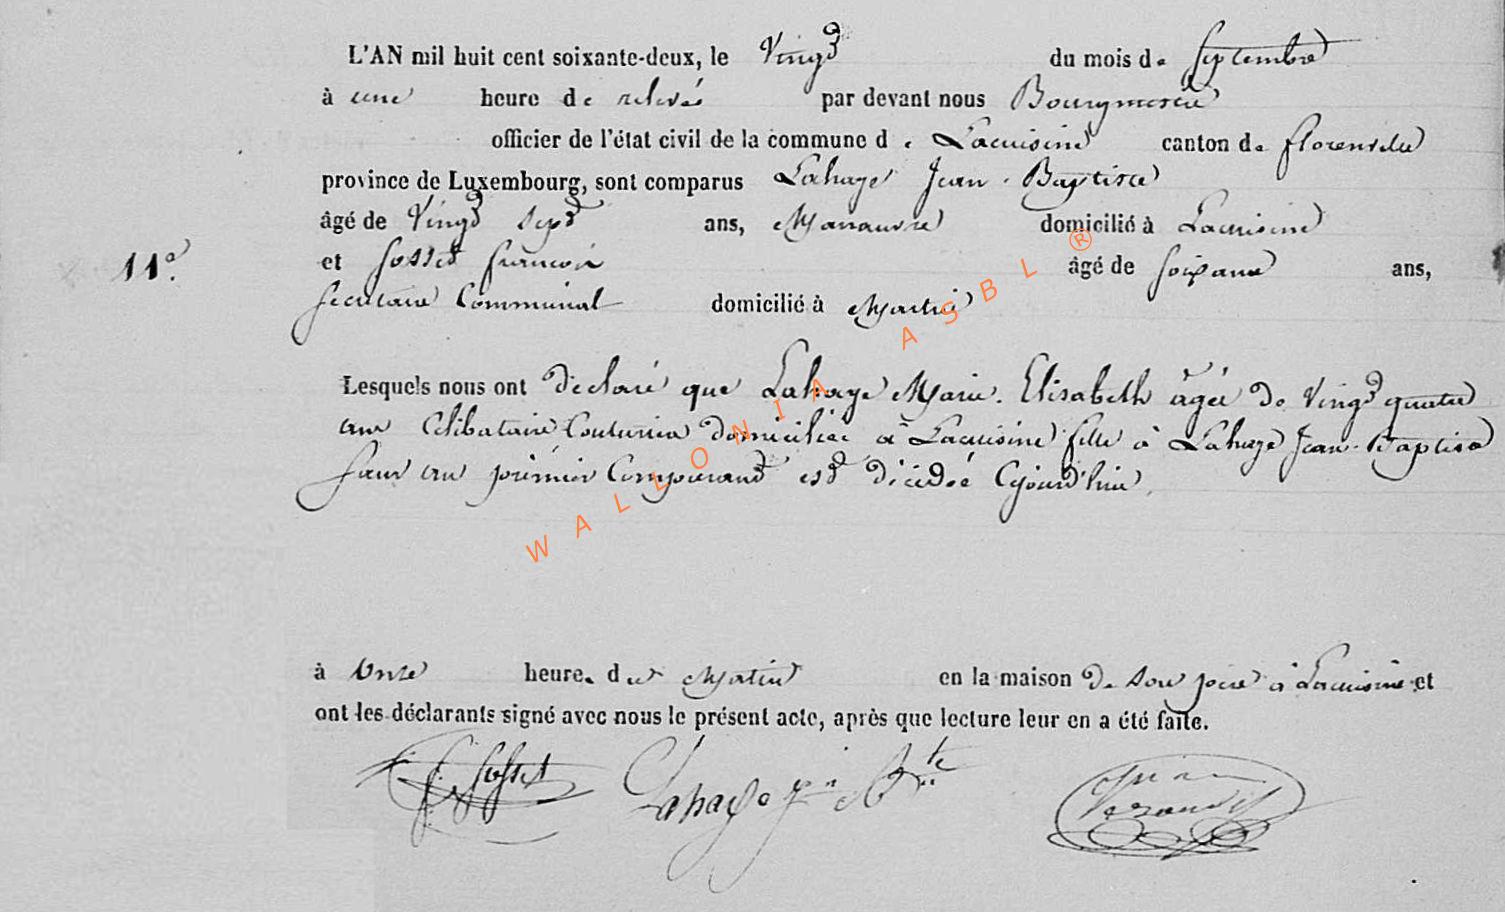 L'AN mil huit cent soixante-deux, le Vingt du mois de Septembre
à une heure de relevée par devant nous Bourgmestre
officier de l'état civil de la commune de Lacuisine canton de florenville
province de Luxembourg, sont comparus Lahaye Jean-Baptiste
âgé de Vingt sept ans, Manœuvre domicilié à Lacuisine
11e. et Sosset françois âgé de soixante ans,
secrétaire Communal domicilié à Martué
Lesquels nous ont déclaré que Lahaye Marie-Elisabeth âgée de Vingt quatre
ans Célibataire Couturière domiciliée à Lacuisine fille à Lahaye Jean-Baptiste
sœur au prémier Comparant est décédée Cejourd'hui
à Onze heure. du Matin en la maison de son père à Lacuisine et
ont les déclarants signé avec nous le présent acte, après que lecture leur en a été faite.
Sosset Lahaye j. Bte
WALLONIA ASBL ®